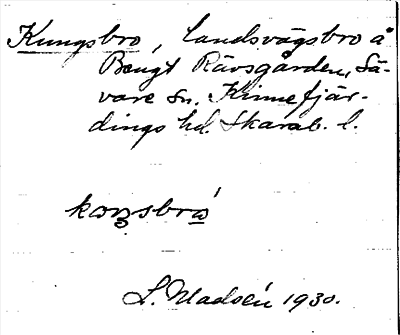 Kungsbro, landsvägsbro å
Bengt Rävsgården, Sä-
vare sn. Kinnefjär-
dings hd. Skarab. l.
koŋsbro̲´
L. Madsén 1930.